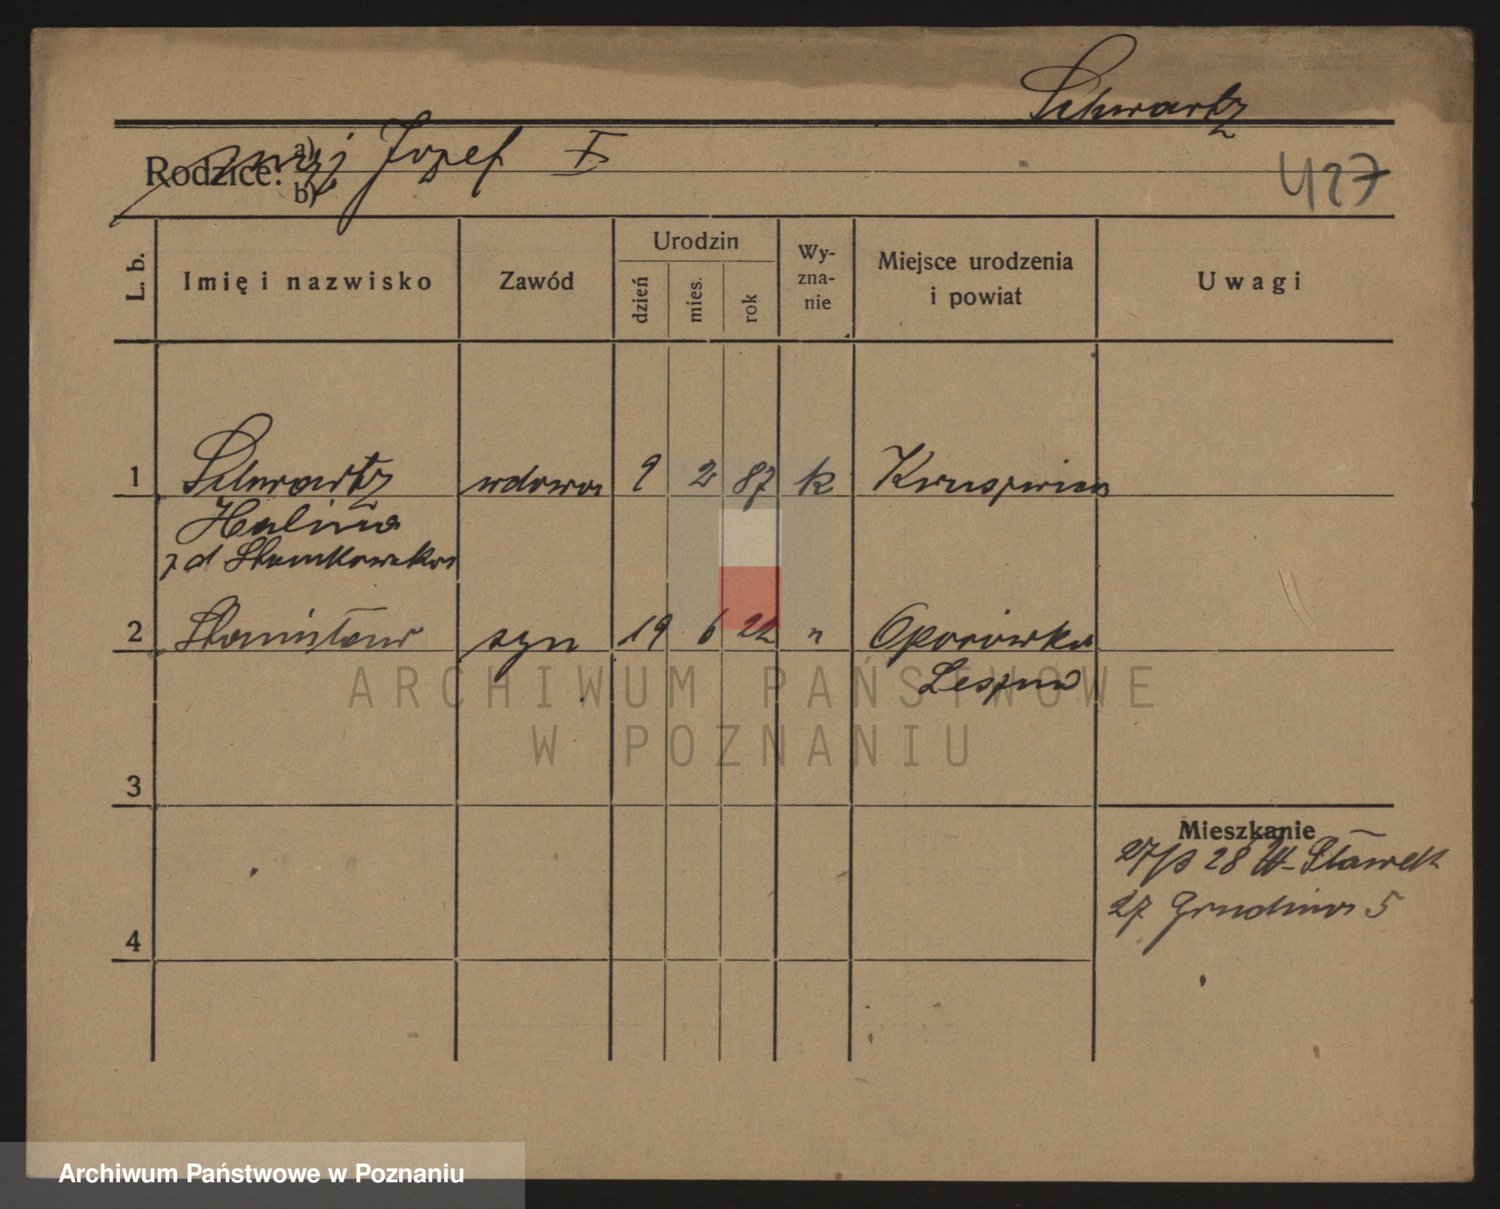 Schwartz
Rodzice: a) mąż Józef I
b)
427
L. b.
Imię i nazwisko
Zawód
Urodzin
dzień
mies.
rok
Wy-
zna-
nie
Miejsce urodzenia
i powiat
Uwagi
1 Schwartz wdowa 9 2 87 k Kruszwica
Halina
z d
2 Stanisław syn 19 6 22 " Oporówko
Leszno
ARCHIWUM PAŃSTWOWE
W POZNANIU
3
Mieszkanie
28
27 Grudnia 5
4
Archiwum Państwowe w Poznaniu